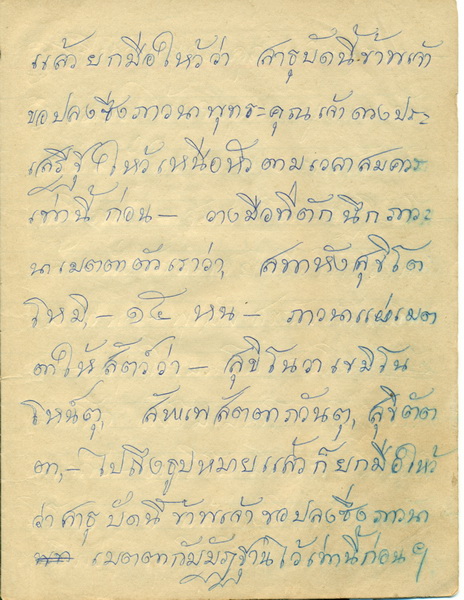 แล้วยกมือไหว้ว่า สาธุบัดนี้ข้าพเจ้า
ขอปลงซึ่งภาวนาพุทธะคุณเจ้าดวงประ
เสริฐ ไหว้เหนือหัวตามเวลาสมควร
เท่านี้ก่อน – วางมือที่ตักนึกภาว
นาเมตตาตัวเราว่า, สพาหังสุขีโต
โหมิ – ๑๕ หน – ภาวนาแผ่เมต
ตาให้สัตว์ว่า – สุขิโนวา เขมิโน
โหนตุ, สัพเพสัตตาภวันตุ, สุขีตัต
ตา, – ไปถึงธูปหมายแล้วก็ยกมือไหว้
ว่าสาธุ บัดนี้ข้าพเจ้าขอปลงซึ่งภาวนา
เมตตากัมมัฏฐานไว้เท่านี้ก่อน ฯ